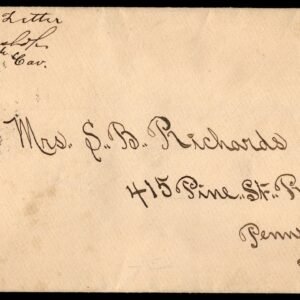 Letter
Cav.
Mrs. S. B. Richards
415 Pine. St. P
Penn